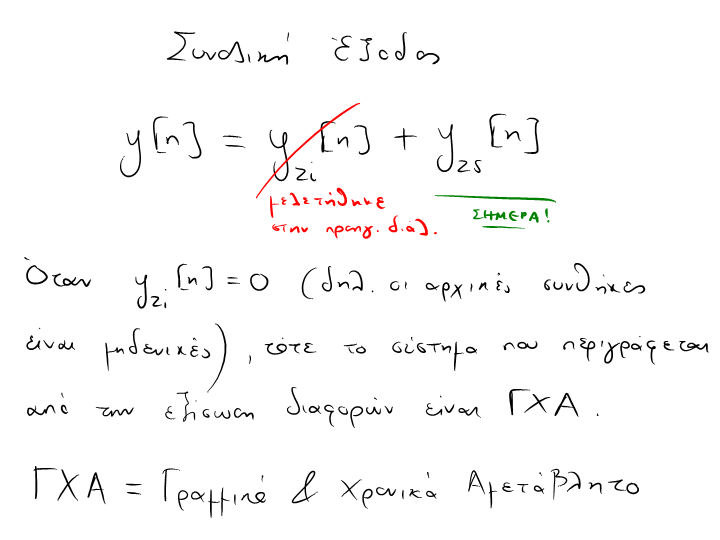 Συνολική έξοδος
y[n] = y_zi[n] + y_zs[n]
μελετήθηκε
στην προηγ. διάλ.
ΣΗΜΕΡΑ!
Όταν y_zi[n] = 0 (δηλ. οι αρχικές συνθήκες
είναι μηδενικές), τότε το σύστημα που περιγράφεται
από την εξίσωση διαφορών είναι ΓΧΑ.
ΓΧΑ = Γραμμικό & Χρονικά Αμετάβλητο